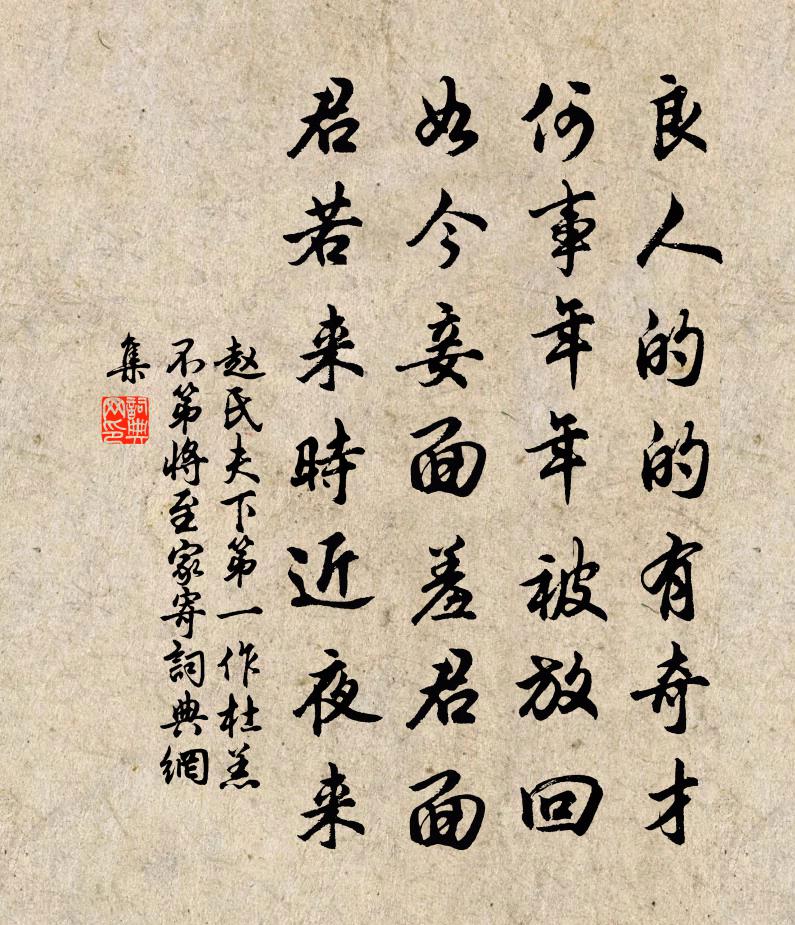 良人的的有奇才
何事年年被放回
如今妾面羞君面
君若来時近夜来
赵氏夫下第一作杜羔
不第将至家寄詞典網
集
詞典网印